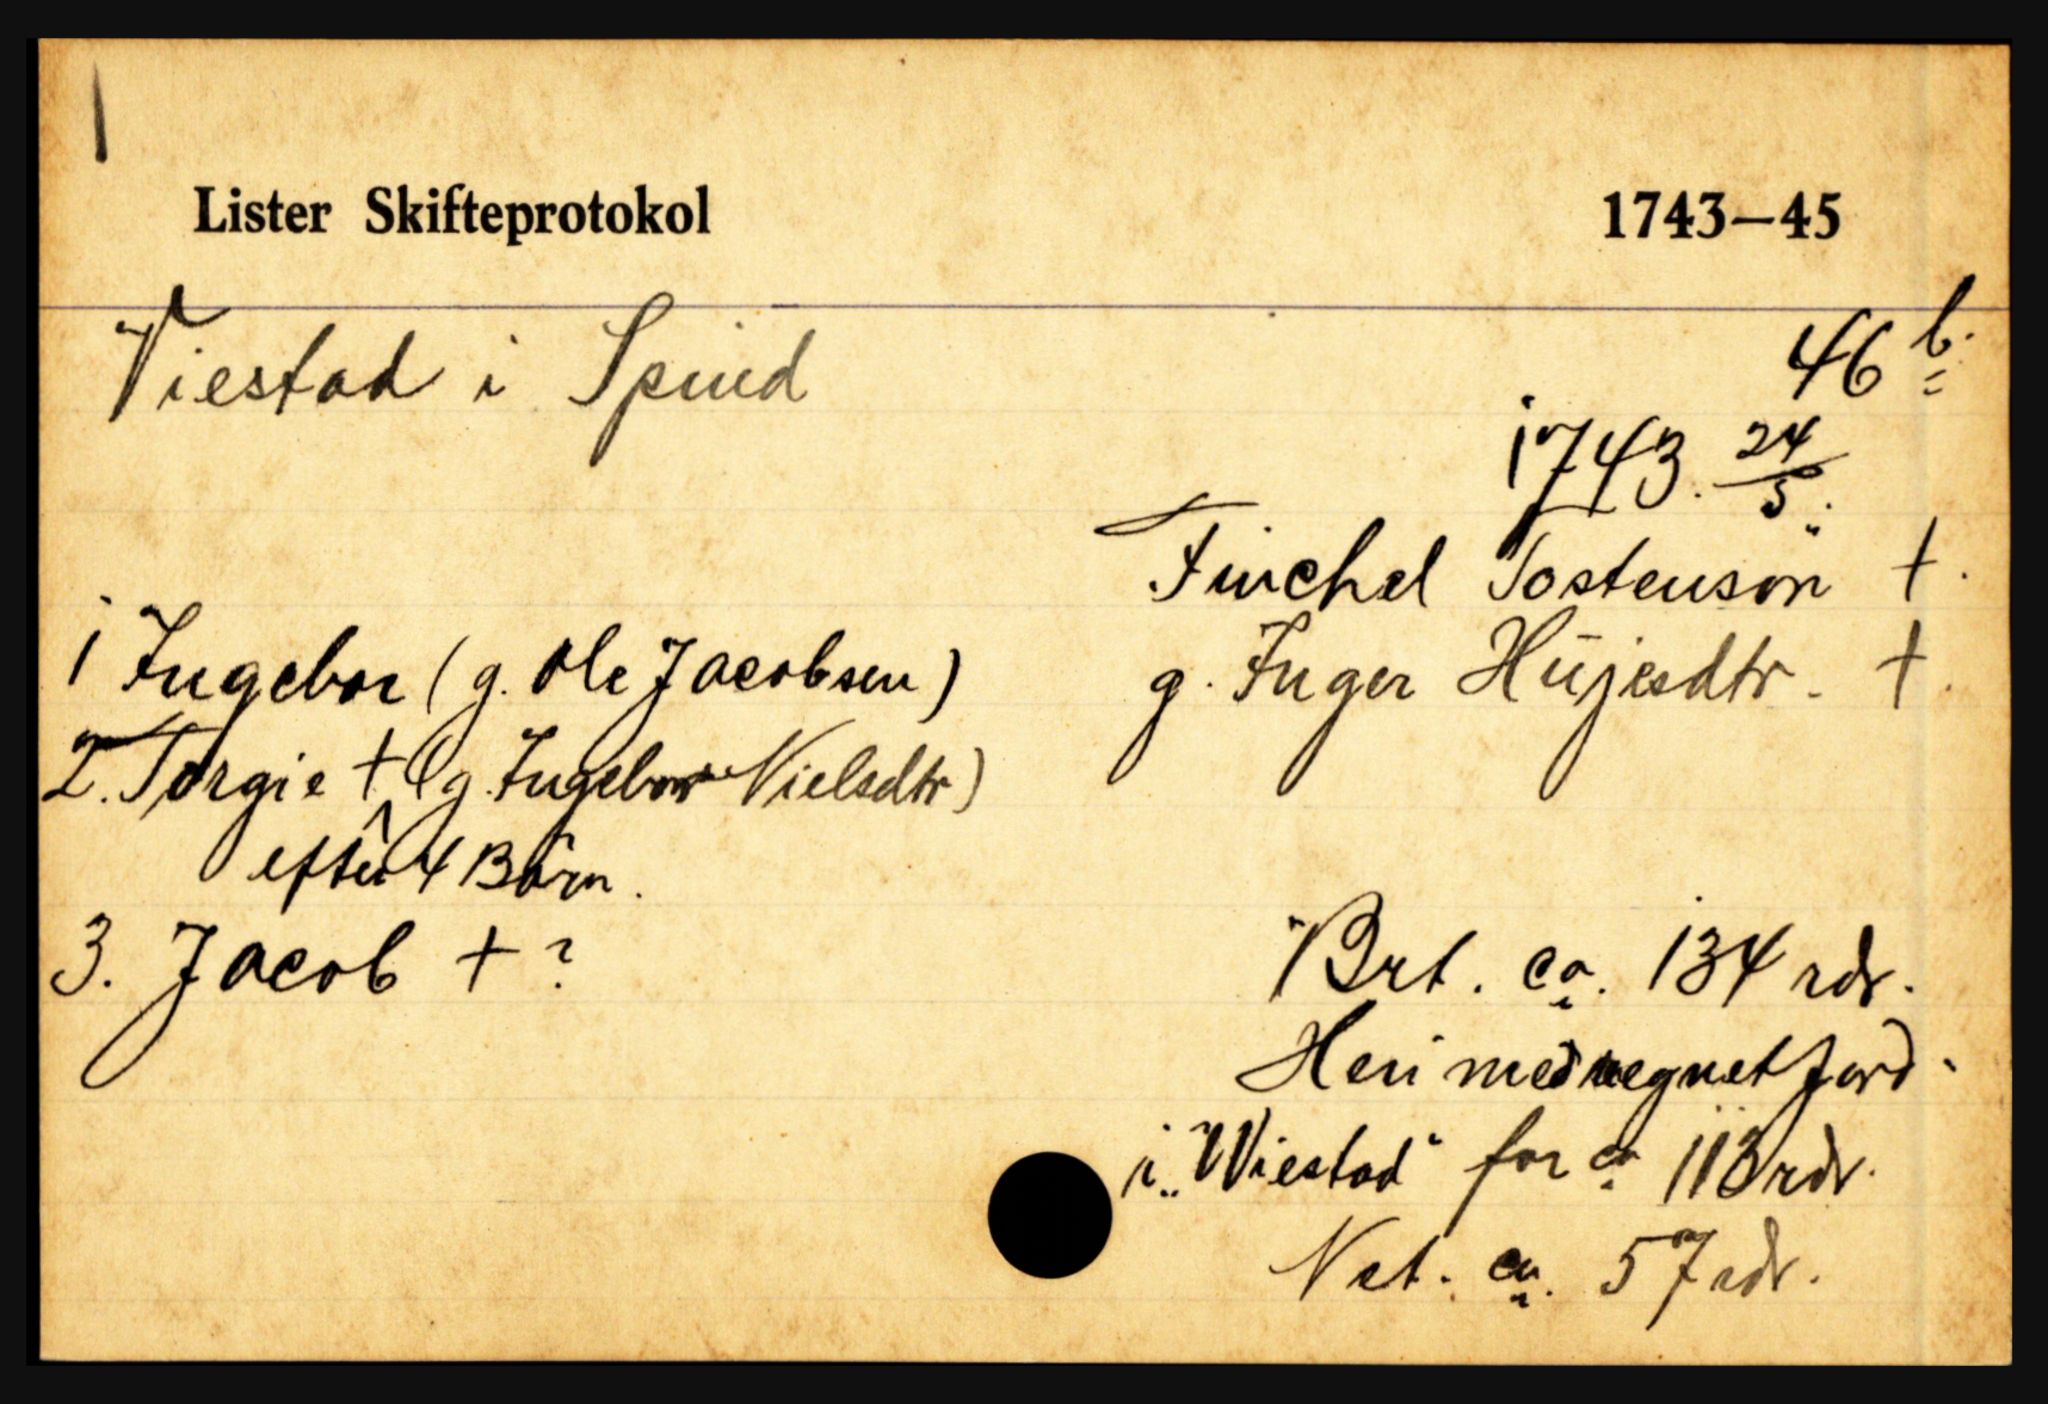 Lister Skifteprotokol 1743–45
Viestad i Spind
46 b.
1743. 24/5.
Finchel Tostenson †.
g. Inger Hüjesdtr. †.
1 Ingebor (g. Ole Jacobsen)
2. Torgie † (g. Ingebor Nielsdtr)
efter 4 Børn.
3. Jacob † ?
Brt. ca. 134 rdr.
Heri medregnet Jord
i „Wiestad“ for ca 113 rdr.
Net. ca. 57 rdr.